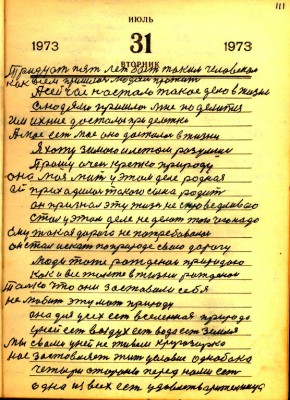 111
ИЮЛЬ
1973 31 1973
ВТОРНИК
Тридцат пят лет быт таким человеком
как всем пришлос людям прожит
А сейчас настало такое дело в жизни
с людями пришлос уже поделится
им ихние достался при делтко
А мое ест мое оно досталос в жизни
Я хочу зимою и летом
Прошу очен крепко природу
она моя мат у этом деле родная
ей приходилос такого сына родит
он признал эту жизн не справедливаю
стал у этом деле не делат того чего надо
ему такая дорога не потребовалас
он стал искат по природе свою дорогу
люди тоже рожденаи природаю
как и все животе в жизни рожденаи
только что они заставали себя
не любит эту мат природу
она для усех ест вселенная природа
у ней ест воздух ест вода ест земля
мы сваими у ней не живем кругозирко
нас заставляет жит условие однобако
четыри стороны перед нами ест
одна из всех ест удовлетварителная